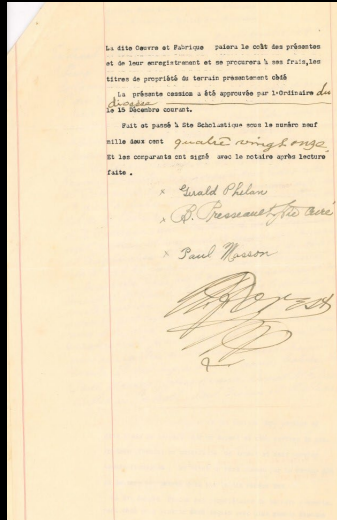 La dite Oeuvre et Fabrique paiera le coût des présentes
et de leur enregistrement et se procurera à ses frais,les
titres de propriété du terrain presentement cédé
La présente cession a été approuvée par l'Ordinaire du
diocèse le 15 Décembre courant.
Fait et passé à Ste Scholastique sous le numéro neuf
mille deux cent quatre vingt onze.
Et les comparants ont signé avec le notaire après lecture
faite .
x Gerald Phelan
x B. Presseault, ptre curé
x Paul Masson